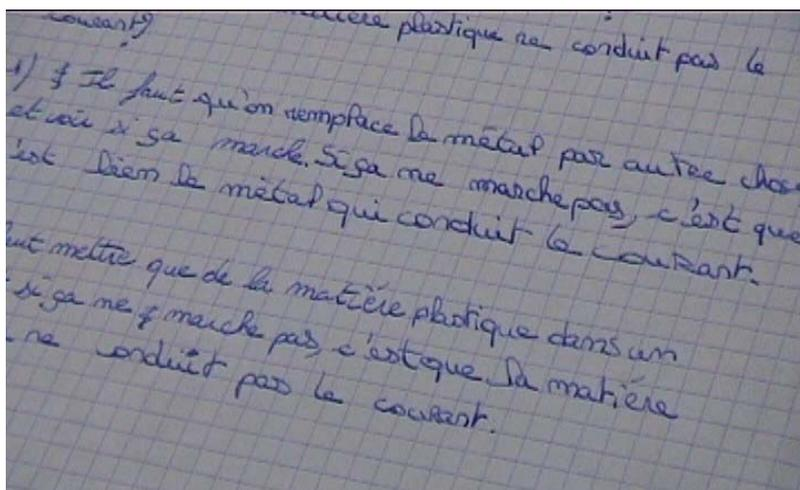 matière plastique ne conduit pas le
courant?
1) Il faut qu'on remplace le métal par autre chos
et voir si ça marche. Si ça ne marche pas, c'est que
'est bien le métal qui conduit le courant.
aut mettre que de la matière plastique dans un
si ça ne marche pas, c'est que la matière
ne conduit pas le courant.